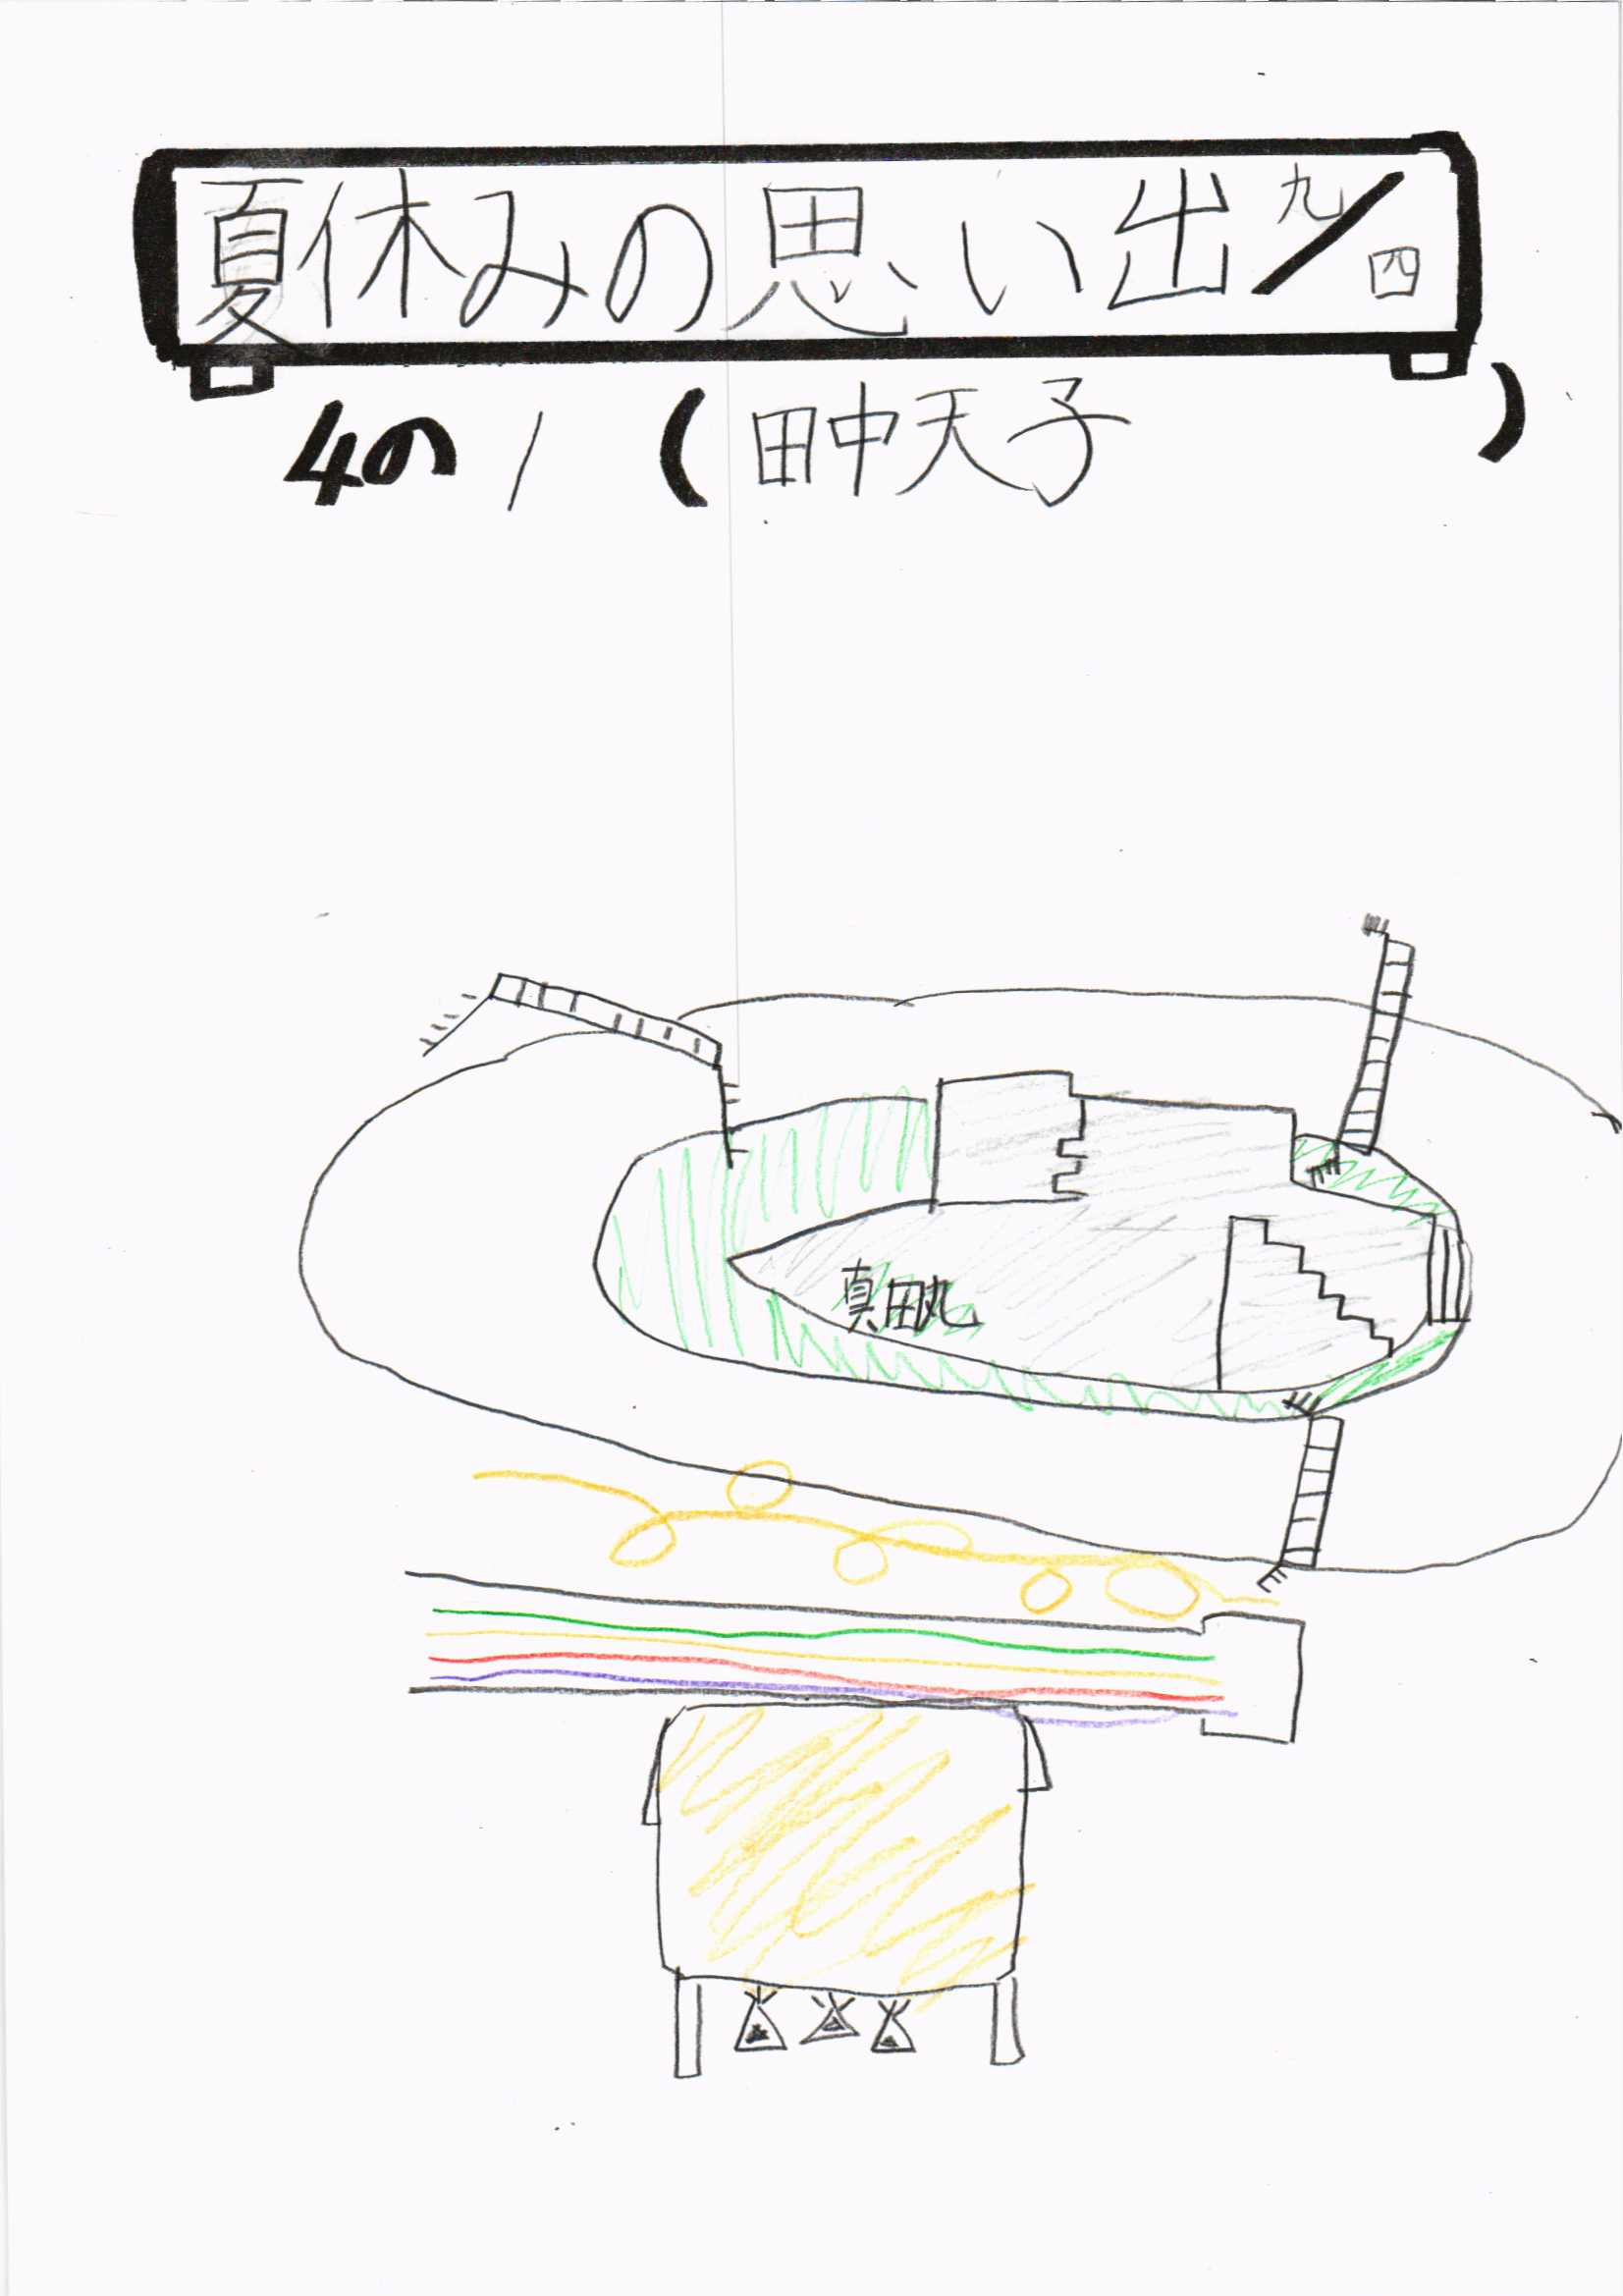 夏休みの思い出 九/四
4の1(田中天子)
真田丸